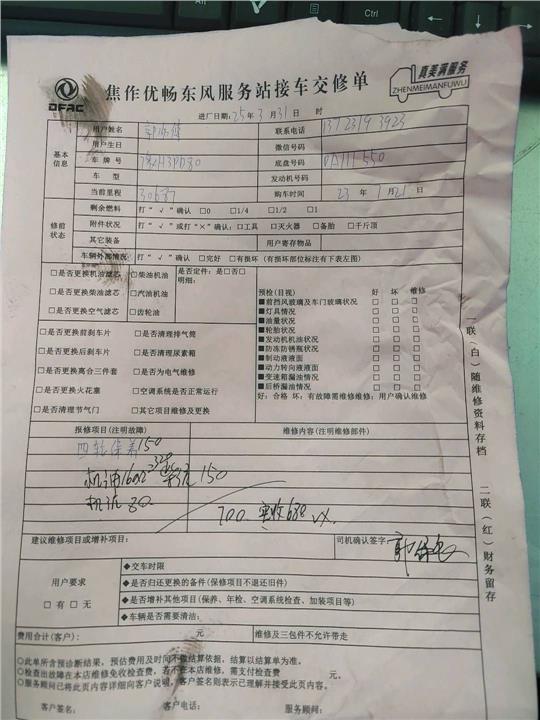 Ctrl
DFAC
焦作优畅东风服务站接车交修单
真美满服务
ZHENMEIMANFUWU
进厂日期: 25年 3月 31日 时
基本信息
用户姓名
联系电话 13723193923
用户生日
微信号码
车牌号
底盘号码 DA111550
车型
发动机号码
当前里程
购车时间 23年 1月 21日
修前状态
剩余燃料 打“√”确认 □0 □1/4 □1/2 □1
附件状况 打“√”或打“×”确认: □工具 □灭火器 □备胎 □千斤顶
其它装备
用户寄存物品
车辆外部情况 打“√”确认 □完好 □有损坏(有损坏部位标注有下表左图)
□是否更换机油滤芯 □柴油机油
□是否更换柴油滤芯 □汽油机油
□是否更换空气滤芯 □齿轮油
是否定件: 是□否□
明细:
□是否更换前刹车片 □是否清理排气筒
□是否更换后刹车片 □是否清理尿素箱
□是否更换离合三件套 □是否为电气维修
□是否更换火花塞 □空调系统是否正常运行
□是否清理节气门 □其它项目维修及更换
预检(目视) 好 坏 维修
■前挡风玻璃及车门玻璃状况 □ □ □
■灯具情况 □ □ □
■油量状况 □ □ □
■轮胎状况 □ □ □
■发动机机油状况 □ □ □
■防冻防锈瓶状况 □ □ □
■制动液液面 □ □ □
■动力转向液液面 □ □ □
■变速箱漏油情况 □ □ □
■后桥漏油情况 □ □ □
好: 合格 坏: 有故障需维修维修: 用户确认维修
报修项目(注明故障)
维修内容(注明维修部件)
四轮保养150
机油16
150
机沉 80
700. 实收638
建议维修项目或增补项目:
司机确认签字:
用户要求
□有 □无
◆交车时限
◆是否归还更换的备件(保修项目不退还旧件)
◆是否增补其他项目(保养、年检、空调系统检查、加装项目等)
◆车辆是否需要清洁:
费用合计(客户): 元
维修及三包件不允许带走
○此单所含预诊断结果,预估费用及时间不做结算依据,结算以结算单为准。
○检查出故障在本店维修免收检查费,若不在本店维修,需支付检查费 元。
○服务顾问已将此页内容详细向客户说明,客户签名则表示已理解并接受此页内容。
客户签名: 客户电话: 服务顾问:
一联(白)随维修资料存档
二联(红)财务留存